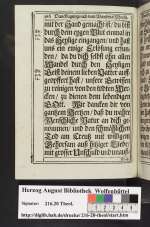 mit der Hand gemacht ist / du bist
durch dein eigen Blut einmal in
das Heylige eingangen / und hast
uns ein ewige Erlösung erfun-
den / da du dich selbst ohn allen
Wandel durch den Heyligen
Geist deinem lieben Vatter auff-
geopffert hast / unsere Gewissen
zu reinigen von den todten Wer-
cken / zu dienen dem lebendigen
GOtt. Wir dancken dir von
gantzem Hertzen / daß du unsere
Menschliche Natur an dich ge-
nommen / und den schmählichen
Tod am Creutz mit willigem
Gehorsam auß hitziger Liebe /
mit grosser Unschuld und
Herzog August Bibliothek Wolfenbüttel
Signatur: 216.20 Theol.
http://diglib.hab.de/drucke/216-20-theol/start.htm